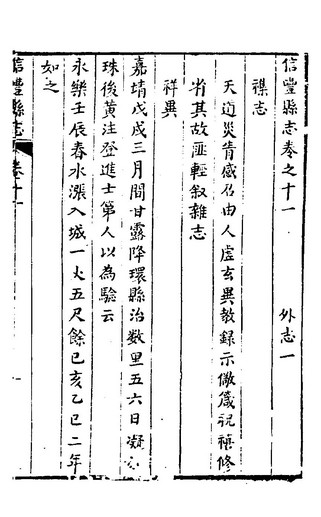 信豐縣志卷之十一 外志一
襍志
天道災眚感召由人虛玄異教錄示儆箴祝禱修
省其故匪輕叙雜志
祥異
嘉靖戊戌三月間甘露降環縣治數里五六日凝如
珠後黃注登進士第人以為驗云
永樂壬辰春水漲入城一丈五尺餘己亥乙巳二年
如之
信豐縣志 卷十一